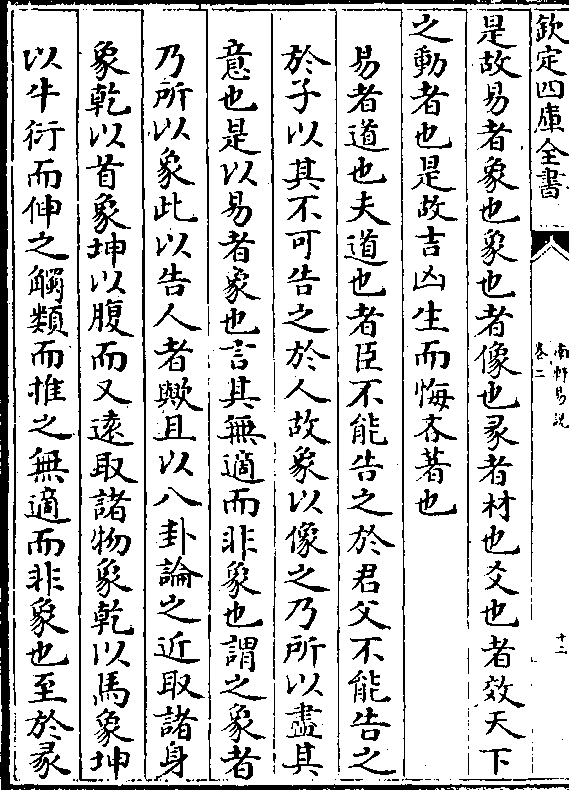 欽定四庫全書
南軒易說
卷二
十二
是故易者象也象也者像也彖者材也爻也者效天下
之動者也是故吉凶生而悔吝著也
易者道也夫道也者臣不能告之於君父不能告之
於子以其不可告之於人故象以像之乃所以盡其
意也是以易者象也言其無適而非象也謂之象者
乃所以象此以告人者歟且以八卦論之近取諸身
象乾以首象坤以腹而又遠取諸物象乾以馬象坤
以牛衍而伸之觸類而推之無適而非象也至於彖